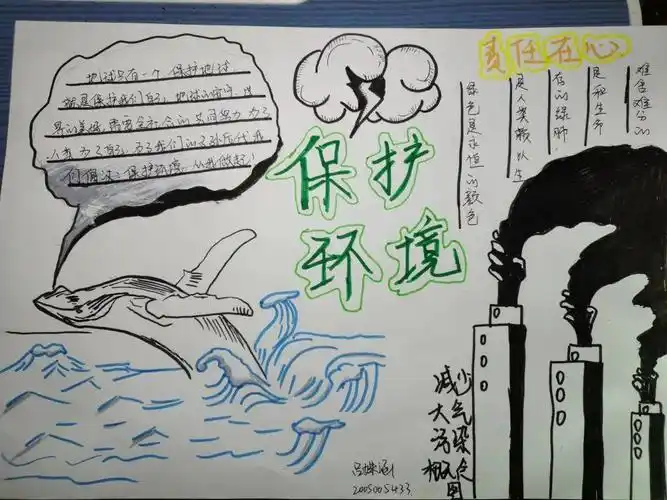 地球只有一个,保护地球
就是保护我们自己,地球的
界的美好,需要全社会的共同努力,为了
人类,为了自己,为了我们的子孙后代,我
们倡议:保护环境,从我做起!
保护
环境
责任在心
难舍难分的
是和生命
在的绿肺.
是人类赖以生
绿色是永恒的颜色
减少
大气
污染
2005005433